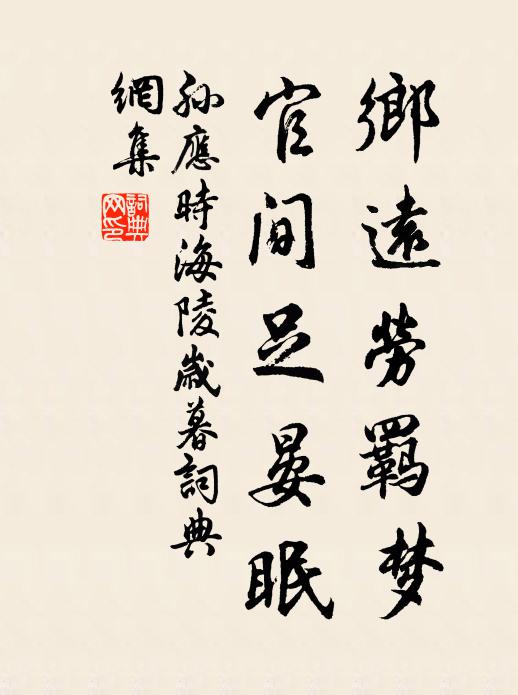 鄉遠勞羈梦
官间足晏眠
孙應時海陵歲暮詞典
網集
詞典
网印